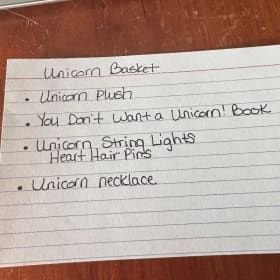 Unicorn Basket
• Unicorn Plush
• You Don't Want a Unicorn! Book
• Unicorn String Lights
Heart Hair Pins
• Unicorn necklace